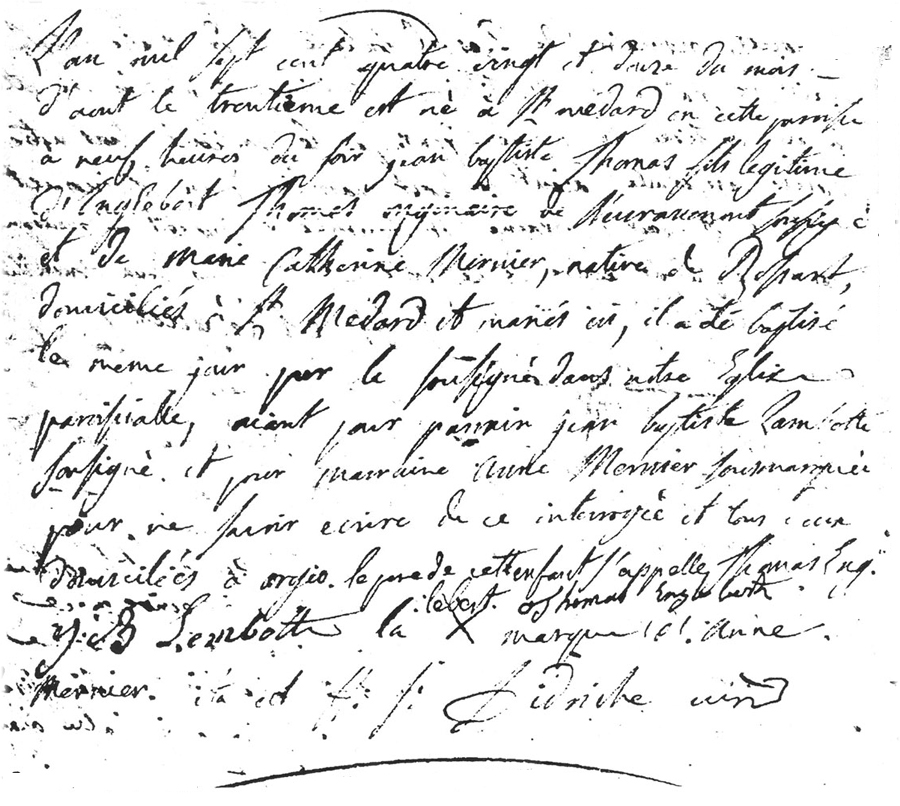 L'an mil sept cent quatre vingt et douze du mois
d'aout le trentieme est né à St medard en cette paroisse
a neuf heures du soir jean baptiste Thomas fils legitime
d'Englebert Thomas originaire de soussigné
et de marie Catherine Mernier, native de
domiciliés à St Medard et mariés ici, il a été baptisé
le meme jour par le soussigné dans notre Eglise
paroissialle, aiant pour parrain jean baptiste Lambotte
soussigné et pour marraine anne Mernier sousmarquée
pour ne savoir ecrire de ce interrogée et tous
domiciliés à orgeo. le pere de cet enfant s'appelle Thomas Eng
lebert. Thomas Englebert
J: B Lambotte la X marque d'anne
Mernier. ita est curé